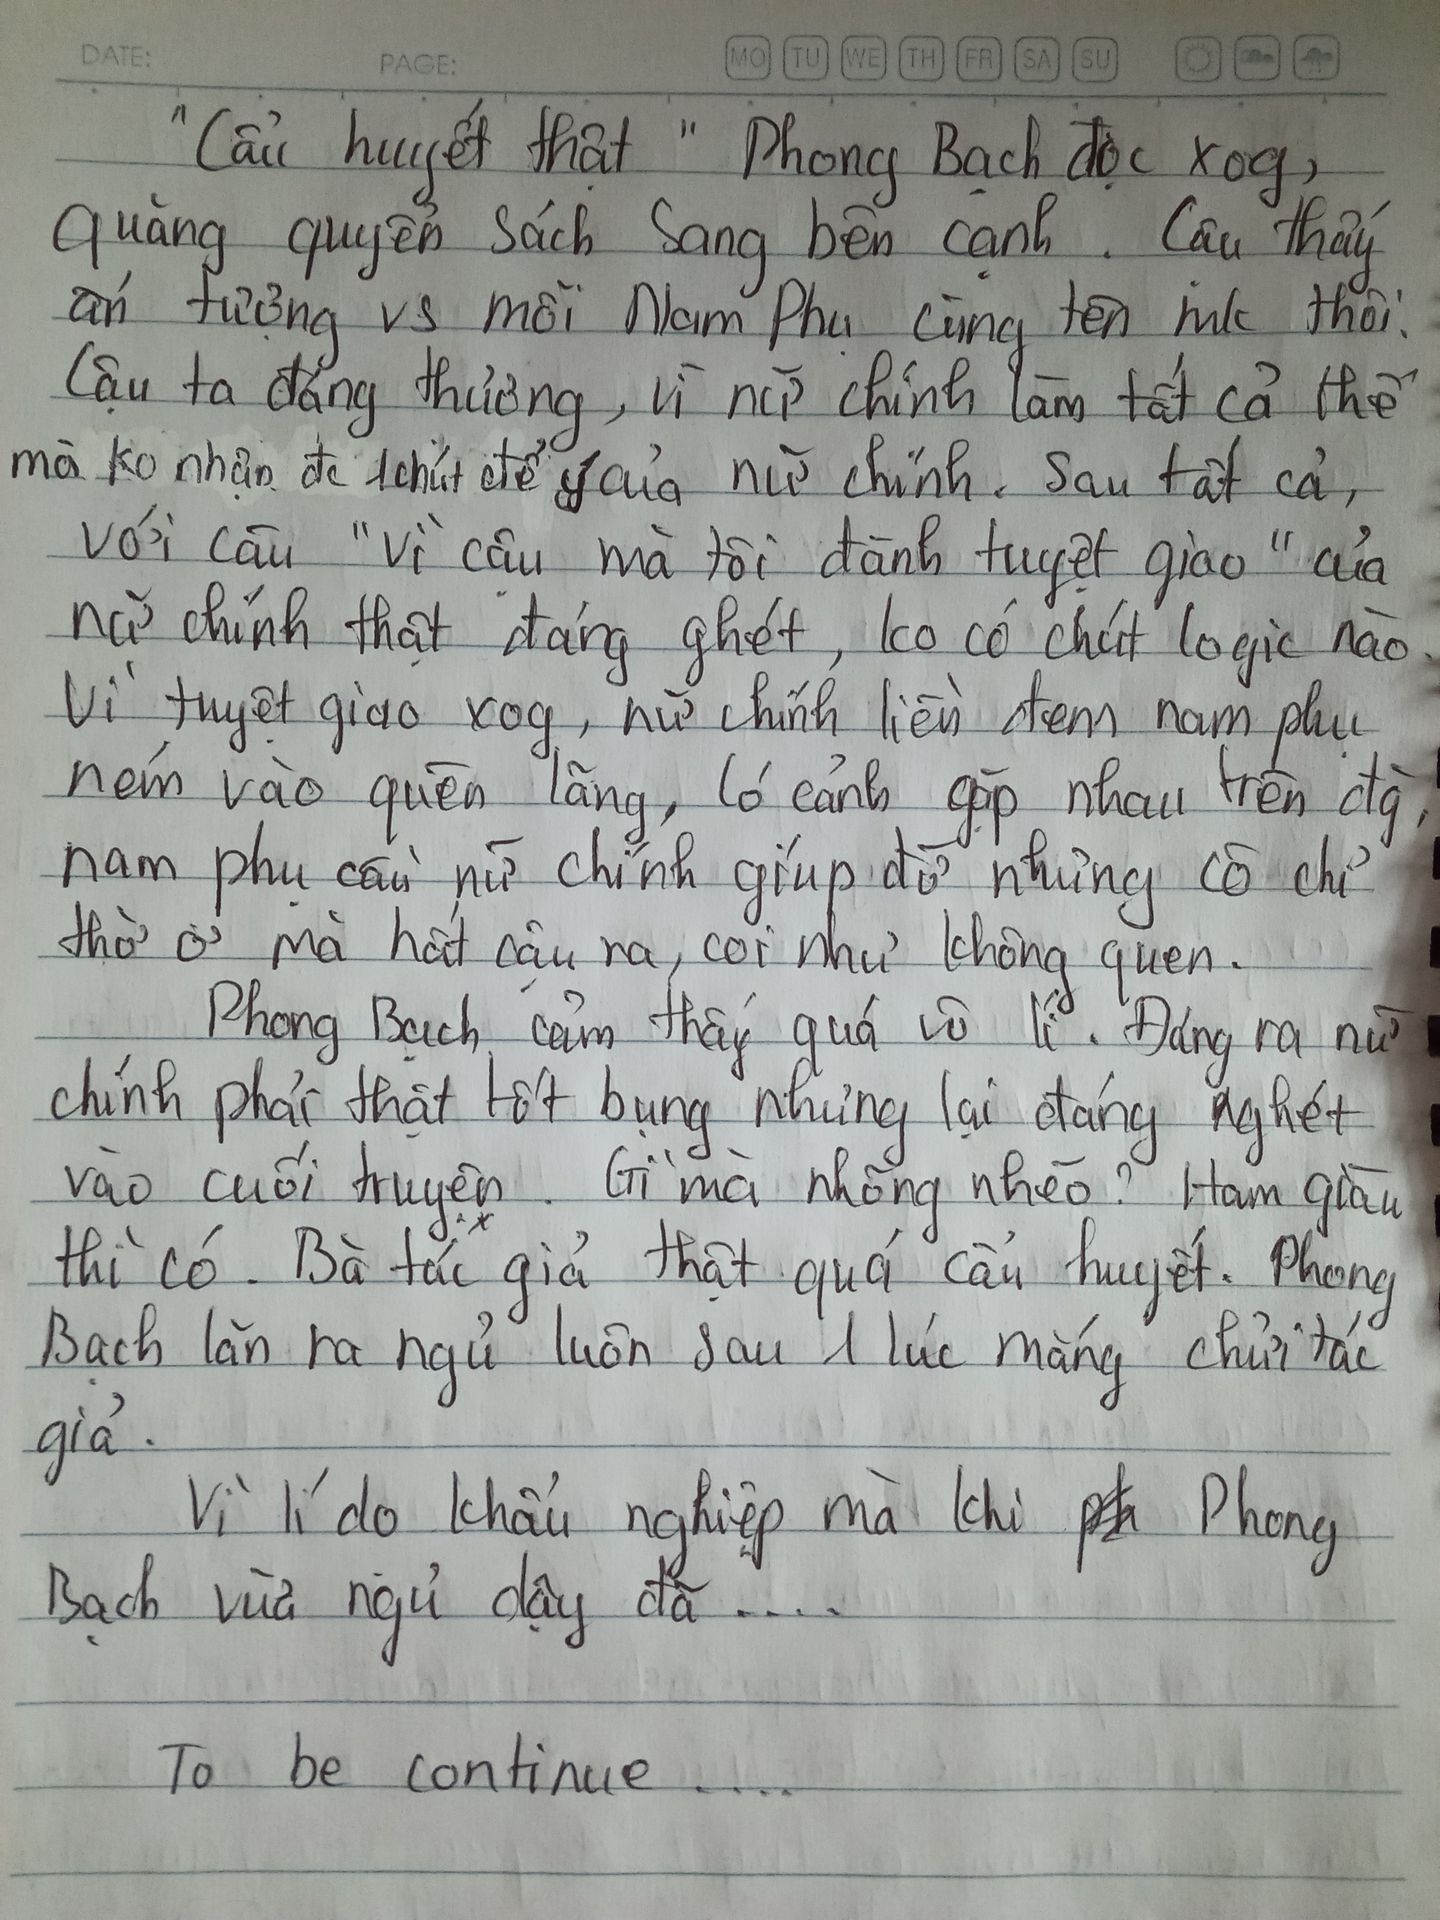 DATE: PAGE: MO TU WE TH FR SA SU
"Cẩu huyết thật" Phong Bạch đọc xog,
quăng quyển sách sang bên cạnh. Cậu thấy
ấn tượng vs mỗi Nam Phụ cùng tên mk thôi.
Cậu ta đáng thương, vì nữ chính làm tất cả thế
mà ko nhận đc 1 chút để ý của nữ chính. Sau tất cả,
với câu "Vì cậu mà tôi đành tuyệt giao" của
nữ chính thật đáng ghét, ko có chút logic nào.
Vì tuyệt giao xog, nữ chính liền đem nam phụ
ném vào quên lãng, Có cảnh gặp nhau trên đg,
nam phụ cầu nữ chính giúp đỡ nhưng cô chỉ
thờ ơ mà hất cậu ra, coi như không quen.
Phong Bạch cảm thấy quá vô lí. Đáng ra nữ
chính phải thật tốt bụng nhưng lại đáng nghét
vào cuối truyện. Gì mà nhõng nhẽo? Ham giàu
thì có. Bà tác giả thật quá cẩu huyết. Phong
Bạch lăn ra ngủ luôn sau 1 lúc mắng chửi tác
giả.
Vì lí do khẩu nghiệp mà khi Phong
Bạch vừa ngủ dậy đã .....
To be continue .....